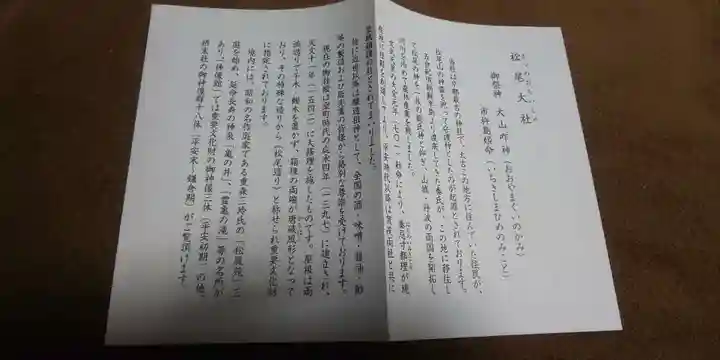 まつのおたいしゃ
松尾大社
御祭神　大山咋神（おおやまぐいのかみ）
市杵島姫命（いちきしまひめのみこと）
当社は京都最古の神社で、太古この地方に住んでいた住民が、
松尾山の神霊を祀って守護神としたのが起源とされております。
五世紀頃朝鮮半島より渡来してきた秦氏が、この地に移住し
て松尾の神を一族の総氏神と仰ぎ、山城・丹波の両国を開拓し、
河川を治めて農林産業を興しました。
文武天皇の大宝元年（七〇一）勅命により、秦忌寸都理が現
在地に社殿を
平安時代以降は賀茂両社と共に
皇城鎮護の社とされてまいりました。
特に近世以降は醸造祖神として、全国の酒・味噌・醤油・酢
等の製造および販売業の皆様から格別な尊崇を受けております。
現在の御社殿は室町時代の応永四年（一三九七）に建立され、
天文十一年（一五四二）に大修理を施したものです。屋根は両
流造りで千木・鰹木を置かず、箱棟の両端が唐破風形となって
おり、その特殊な造りから（松尾造り）と称せられ重要文化財
に指定されております。
境内には、昭和の名作庭家である重森三玲氏の「松風苑」三
庭を始め、延命長寿の神泉「亀の井」、「霊亀の滝」等の名所が
あり「神像館」では重要文化財の御神像三体（平安初期）の他、
摂末社の御神像群十八体（平安末～鎌倉期）がご覧頂けます。